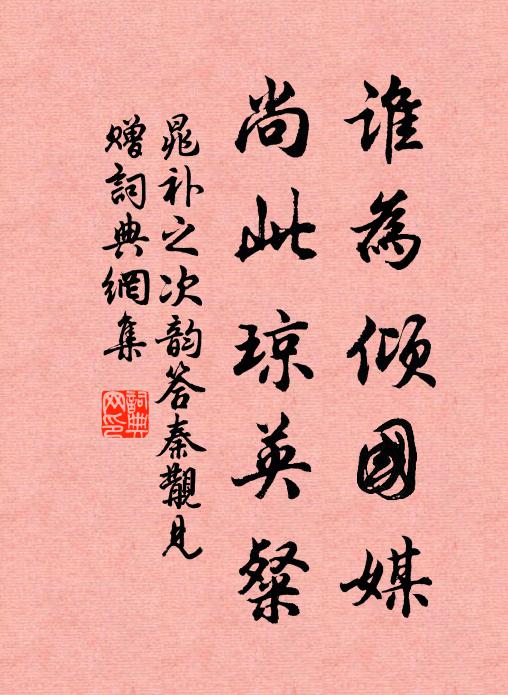 誰為傾國媒
尚此琼英粲
晁补之次韵答秦觀見
赠詞典網集
詞典
网印